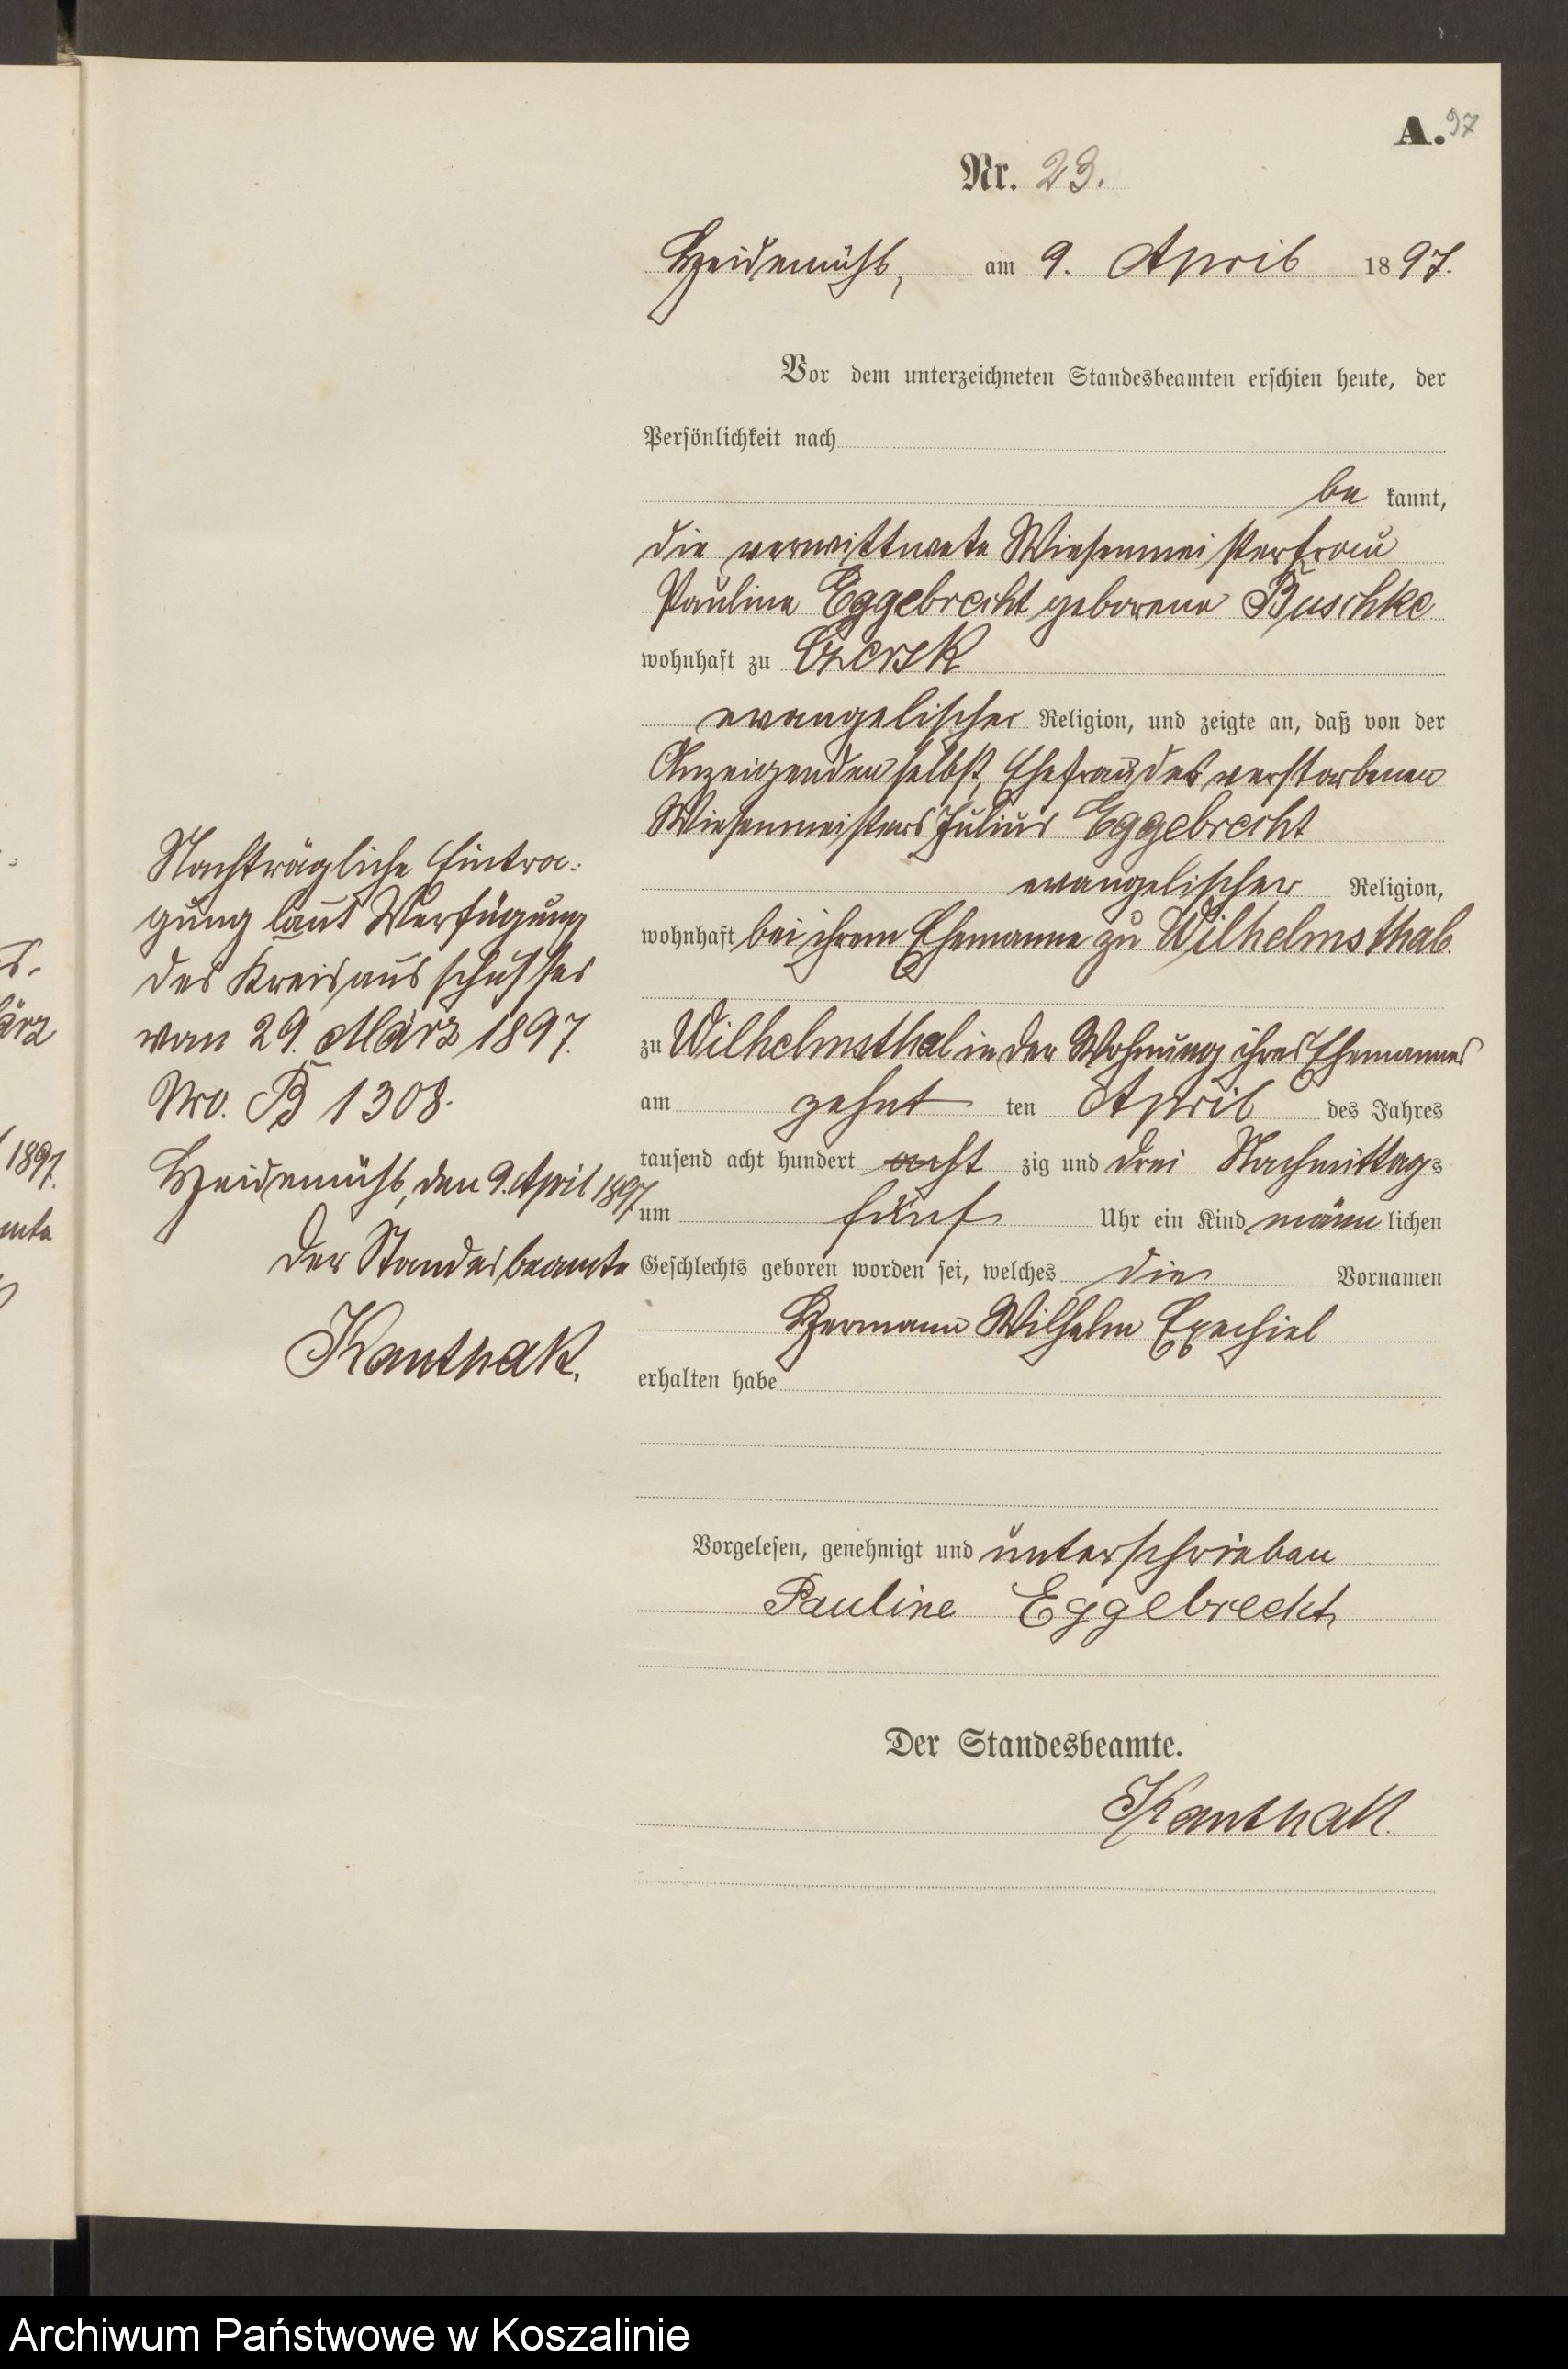 A. 97
Nr. 23.
Heidemühl, am 9. April 1897.
Vor dem unterzeichneten Standesbeamten erschien heute, der
Persönlichkeit nach
be kannt,
die verwittwete Wiesenmeisterfrau
Pauline Eggebrecht geborene Buschke
wohnhaft zu Czersk
evangelischer Religion, und zeigte an, daß von der
Anzeigenden selbst, Ehefrau des verstorbenen
Wiesenmeisters Julius Eggebrecht
evangelischer Religion,
wohnhaft bei ihrem Ehemanne zu Wilhelmsthal.
zu Wilhelmsthal in der Wohnung ihres Ehemannes
am zehnt ten April des Jahres
tausend acht hundert acht zig und drei Nachmittags
um fünf Uhr ein Kind männ lichen
Geschlechts geboren worden sei, welches die Vornamen
Hermann Wilhelm Exechiel
erhalten habe
Vorgelesen, genehmigt und unterschrieben
Pauline Eggebrecht
Der Standesbeamte.
Kanthak.
Nachträgliche Eintra:
gung laut Verfügung
des Kreisausschusses
vom 29. März 1897.
Nro. B 1308.
Heidemühl, den 9. April 1897
Der Standesbeamte
Kanthak.
ärz
1897.
Archiwum Państwowe w Koszalinie